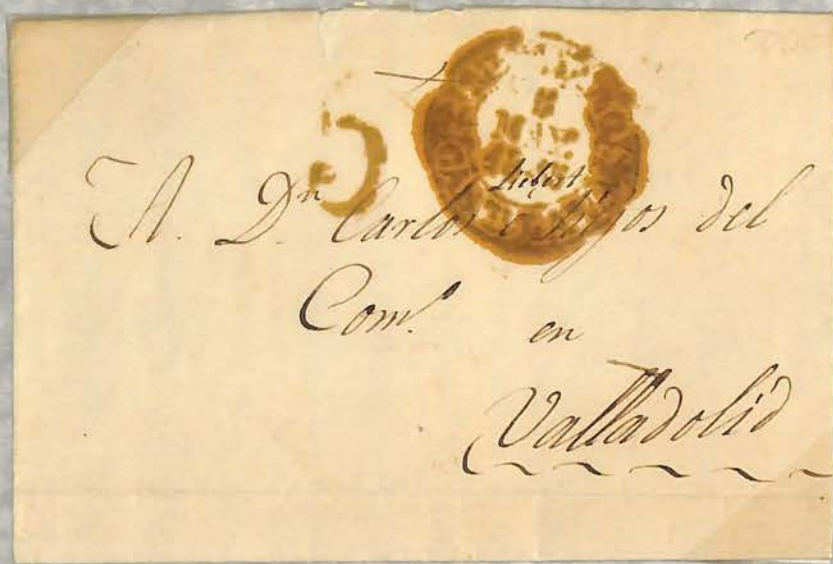 5
A. Dn Carlos e Hijos del
Coml. en
Valladolid